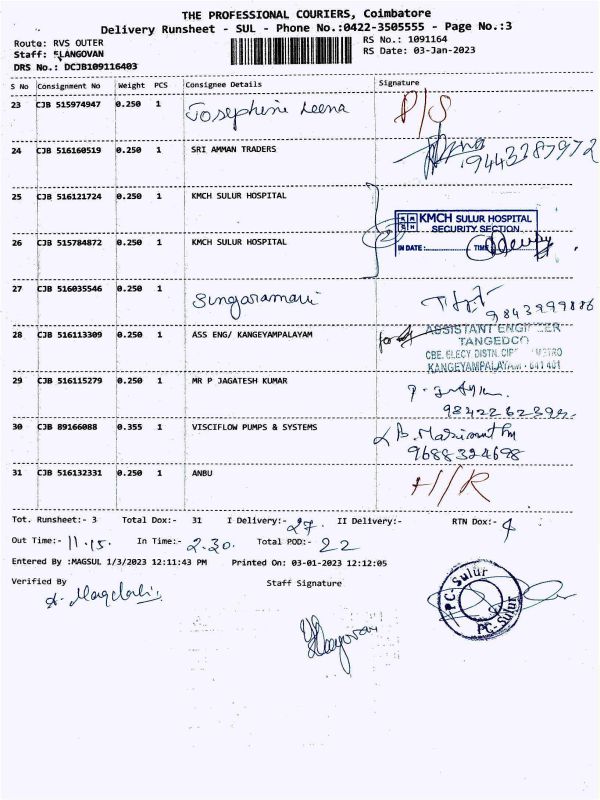 THE PROFESSIONAL COURIERS, Coimbatore
Delivery Runsheet - SUL - Phone No.:0422-3505555 - Page No.:3
Route: RVS OUTER RS No.: 1091164
Staff: ELANGOVAN RS Date: 03-Jan-2023
DRS No.: DCJB109116403
S No Consignment No Weight PCS Consignee Details Signature
23 CJB 515974947 0.250 1 Josephine Leena P/S
24 CJB 516160519 0.250 1 SRI AMMAN TRADERS 9443387972
25 CJB 516121724 0.250 1 KMCH SULUR HOSPITAL
KMCH SULUR HOSPITAL
SECURITY SECTION
26 CJB 515784872 0.250 1 KMCH SULUR HOSPITAL 2
IN DATE: TIME
27 CJB 516035546 0.250 1 Singaramani 9843999886
28 CJB 516113309 0.250 1 ASS ENG/ KANGEYAMPALAYAM for
ASSISTANT ENGINEER
TANGEDCO
CBE. ELECY DISTN. CIRCLE METRO
KANGEYAMPALAYAM - 641 401
29 CJB 516115279 0.250 1 MR P JAGATESH KUMAR
30 CJB 89166088 0.355 1 VISCIFLOW PUMPS & SYSTEMS
9688324698
31 CJB 516132331 0.250 1 ANBU H/R
Tot. Runsheet:- 3 Total Dox:- 31 I Delivery:- 27 II Delivery:- RTN Dox:- 4
Out Time:- 11.15. In Time:- 2.30. Total POD:- 22
Entered By :MAGSUL 1/3/2023 12:11:43 PM Printed On: 03-01-2023 12:12:05
Verified By Staff Signature
PC-Sulur
PC-Sulur